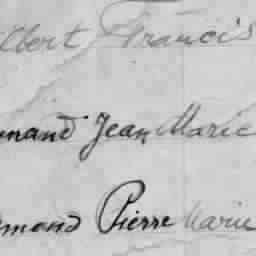 lbert Francis
mand Jean Marie
mond Pierre Marie